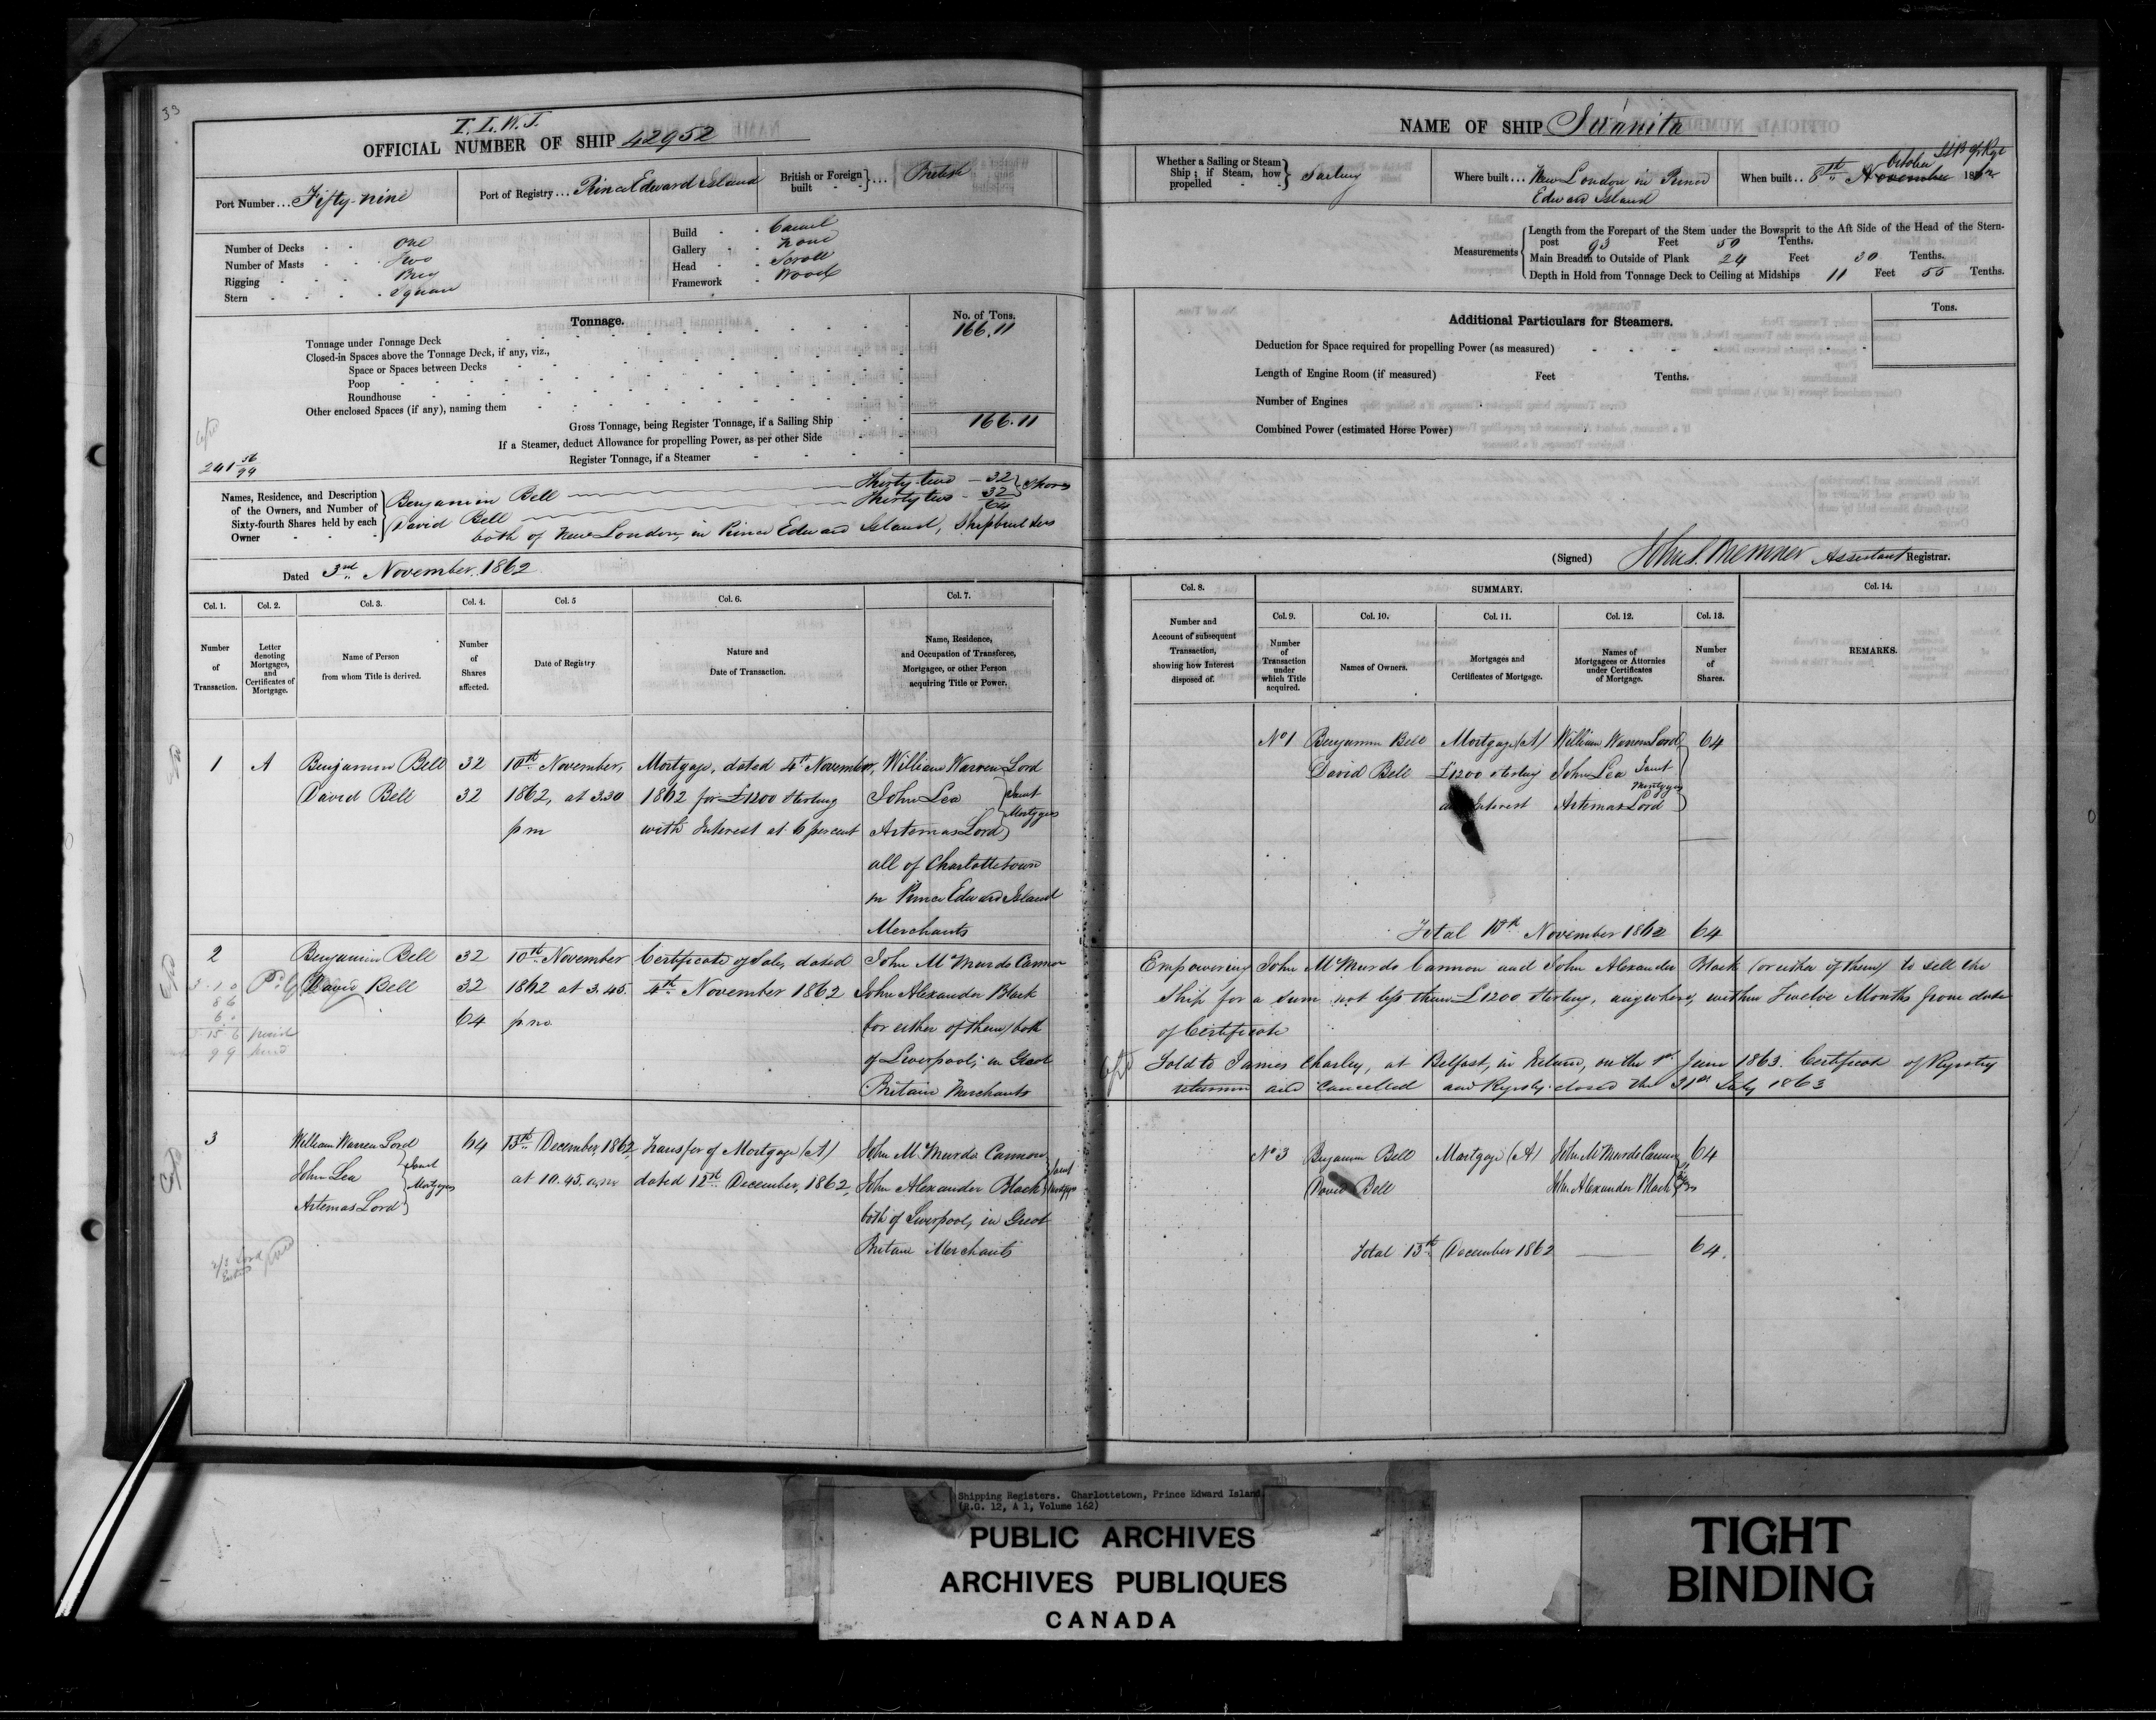 33
T.L.W.J.
OFFICIAL NUMBER OF SHIP 42952
Port Number ... Fifty-nine
Port of Registry ... Prince Edward Island
British or Foreign built ... British
Number of Decks One
Number of Masts Two
Rigging Brig
Stern Square
Build Carvel
Gallery None
Head Scroll
Framework Wood
Tonnage.
No. of Tons.
Tonnage under Tonnage Deck 166.11
Closed-in Spaces above the Tonnage Deck, if any, viz.,
Space or Spaces between Decks
Poop
Roundhouse
Other enclosed Spaces (if any), naming them
Gross Tonnage, being Register Tonnage, if a Sailing Ship 166.11
If a Steamer, deduct Allowance for propelling Power, as per other Side
Register Tonnage, if a Steamer
241 56/94
Names, Residence, and Description of the Owners, and Number of Sixty-fourth Shares held by each Owner
Benjamin Bell Thirty-two 32
David Bell Thirty two 32 Shares
64
both of New London, in Prince Edward Island, Shipbuilders
Dated 3rd November 1862
Col. 1. Col. 2. Col. 3. Col. 4. Col. 5 Col. 6. Col. 7.
Number of Transaction.
Letter denoting Mortgages, and Certificates of Mortgage.
Name of Person from whom Title is derived.
Number of Shares affected.
Date of Registry
Nature and Date of Transaction.
Name, Residence, and Occupation of Transferee, Mortgagee, or other Person acquiring Title or Power.
1 A Benjamin Bell 32 10th November, Mortgage, dated 4th November, William Warren Lord
David Bell 32 1862, at 3.30 1862 for £1200 Sterling John Lea Joint
pm with Interest at 6 percent Artemas Lord Mortgagees
all of Charlottetown
in Prince Edward Island
Merchants
2 Benjamin Bell 32 10th November Certificate of Sale, dated John McMurdo Cannon
David Bell 32 1862 at 3.45. 4th November 1862 John Alexander Black
64 pm (or either of them) both
of Liverpool, in Great
Britain Merchants
3 William Warren Lord 64 13th December 1862 Transfer of Mortgage (A) John McMurdo Cannon
John Lea Joint Mortgagees at 10.45. a.m dated 12th December, 1862, John Alexander Black Joint Mortgagees
Artemas Lord both of Liverpool, in Great
Britain Merchants
NAME OF SHIP
Whether a Sailing or Steam Ship; if Steam, how propelled Sailing
Where built ... New London in Prince
Edward Island
When built .. 8th November October 1862
Measurements
Length from the Forepart of the Stem under the Bowsprit to the Aft Side of the Head of the Stern-
post 93 Feet 50 Tenths.
Main Breadth to Outside of Plank 24 Feet 30 Tenths.
Depth in Hold from Tonnage Deck to Ceiling at Midships 11 Feet 55 Tenths.
Additional Particulars for Steamers.
Tons.
Deduction for Space required for propelling Power (as measured)
Length of Engine Room (if measured) Feet Tenths.
Number of Engines
Combined Power (estimated Horse Power)
(Signed) John S. Bremner Assistant Registrar.
Col. 8. SUMMARY. Col. 14.
Col. 9. Col. 10. Col. 11. Col. 12. Col. 13.
Number and Account of subsequent Transaction, showing how Interest disposed of.
Number of Transaction under which Title acquired.
Names of Owners.
Mortgages and Certificates of Mortgage.
Names of Mortgagees or Attornies under Certificates of Mortgage.
Number of Shares.
REMARKS.
No 1 Benjamin Bell Mortgage (A) William Warren Lord 64
David Bell £1200 sterling John Lea Joint
Interest Artemas Lord Mortgagees
Total 10th November 1862 64
Empowering John McMurdo Cannon and John Alexander Black (or either of them) to sell the
Ship for a sum not less than £1200 sterling, anywhere, within Twelve Months from date
of Certificate
Sold to James Charley, at Belfast, in Ireland, on the 1st June 1863. Certificate of Registry
returned and cancelled and Registry closed the 31st July 1863
No 3 Benjamin Bell Mortgage (A) John McMurdo Cannon 64
David Bell John Alexander Black
Total 13th December 1862 64.
Shipping Registers. Charlottetown, Prince Edward Island.
(R.G. 12, A 1, Volume 162)
PUBLIC ARCHIVES
ARCHIVES PUBLIQUES
CANADA
TIGHT
BINDING